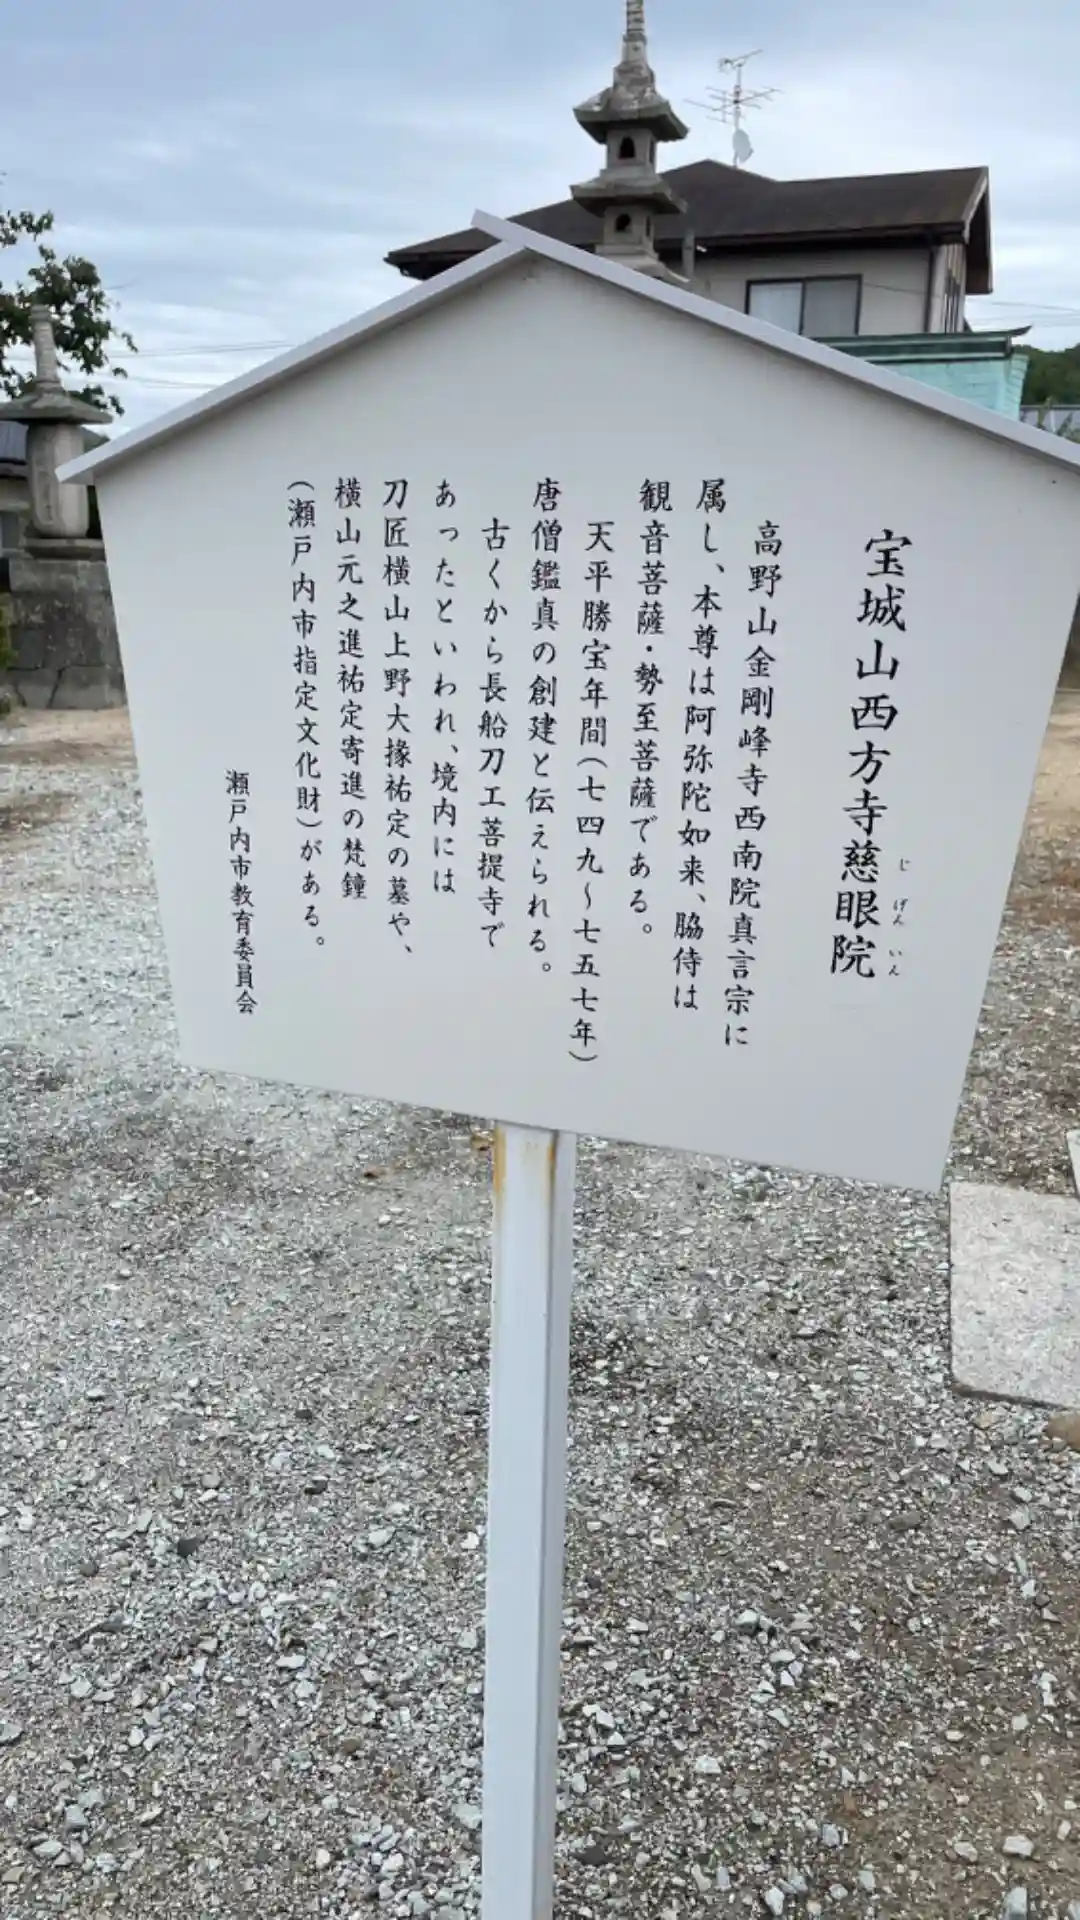 宝城山西方寺慈眼院
じげんいん
高野山金剛峰寺西南院真言宗に
属し、本尊は阿弥陀如来、脇侍は
観音菩薩・勢至菩薩である。
天平勝宝年間(七四九~七五七年)
唐僧鑑真の創建と伝えられる。
古くから長船刀工菩提寺で
あったといわれ、境内には
刀匠横山上野大掾祐定の墓や、
横山元之進祐定寄進の梵鐘
(瀬戸内市指定文化財)がある。
瀬戸内市教育委員会